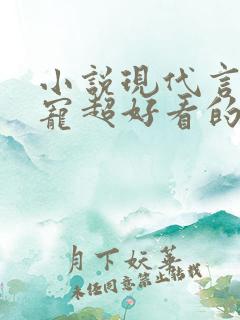 小説現代言
寵超好看的
月下妖華
未经同意禁止转载